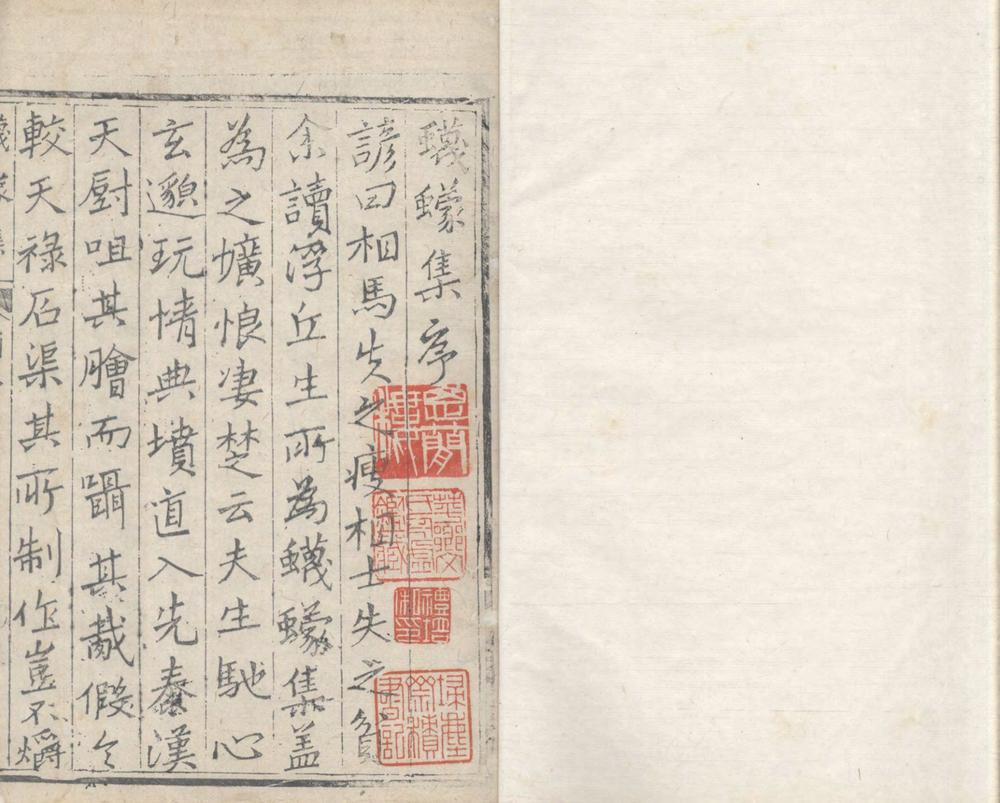 蠛蠓集序
諺曰相馬失之瘦相士失之貧
余讀浮丘生所為蠛蠓集盖
為之壙悢凄楚云夫生馳心
玄邈玩情典墳直入先秦漢
天厨咀其膾而囁其胾假令
較天禄石渠其所制作豈不爝